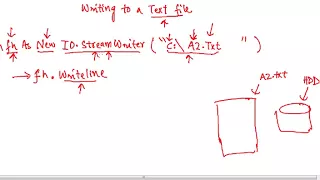 Writing to a Text file
fh As New IO.StreamWriter ("C:\A2.Txt ")
→ fh. Writeline
A2.txt
HDD